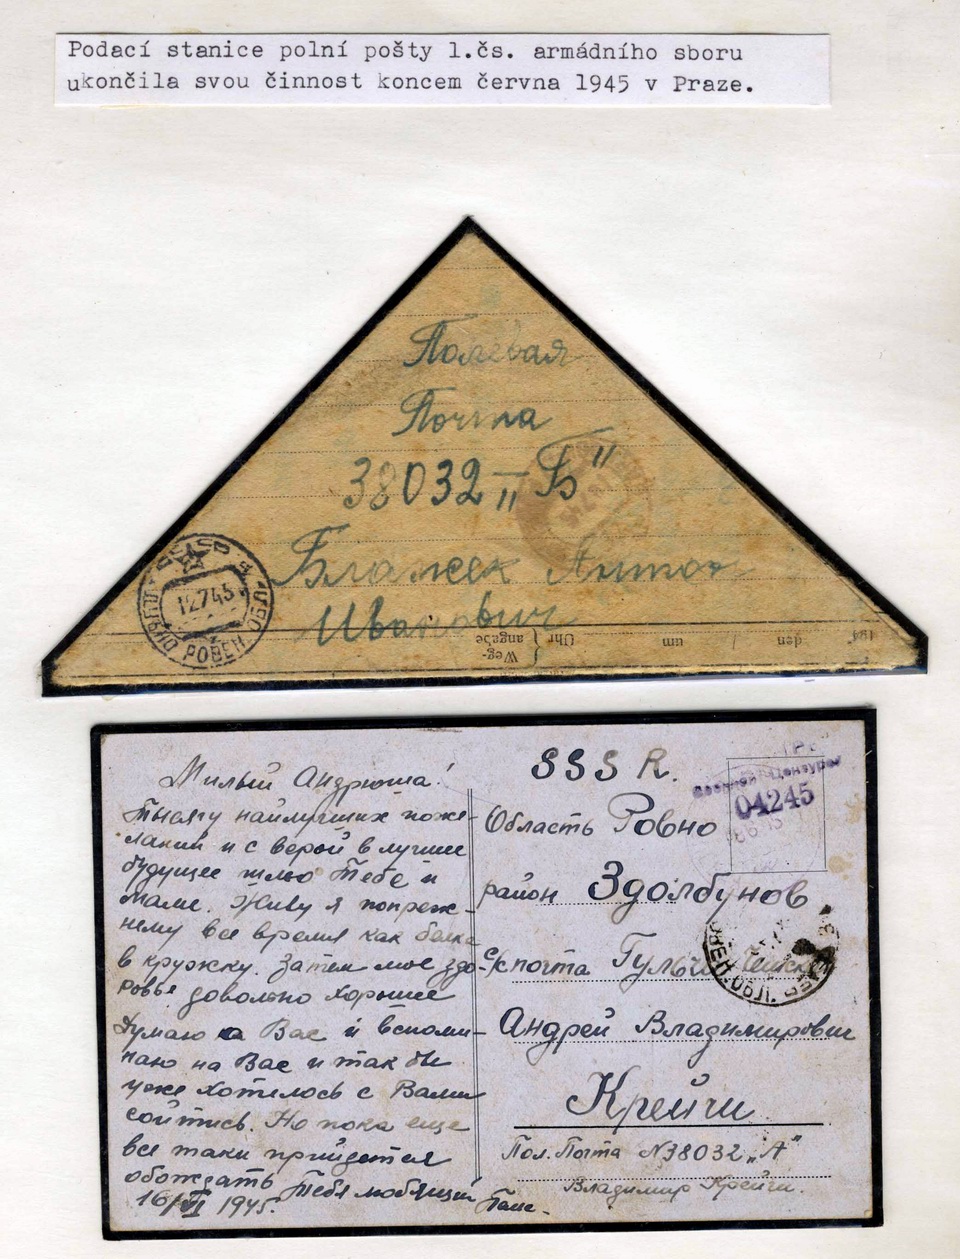 Podací stanice polní pošty 1.čs. armádního sboru
ukončila svou činnost koncem června 1945 v Praze.
Полевая
Почта
38032 „Б"
Блажек Антон
Иванович
12745
РОВЕН ОБЛ
Weg-
angabe
Uhr
um
den
194
Милый Андрюша!
Тысячу наилучших поже-
ланий и с верой в лучшее
будущее шлю Тебе и
маме. Живу я попреж-
нему все время как белка
в кружку. Затем мое здо-
ровье довольно хорошее
Думаю о Вас и вспоми-
наю на Вас и так бы
уже хотелось с Вами
сойтись. Но пока еще
все таки прийдется
обождать Тебя любящий Папа.
16/VI 1945.
SSSR.
Военной Цензурой
04245
Область Ровно
район Здолбунов
с/к почта Гульча
Андрей Владимирович
Крейчи
Пол. Почта N38032 „А"
Владимир Крейчи.